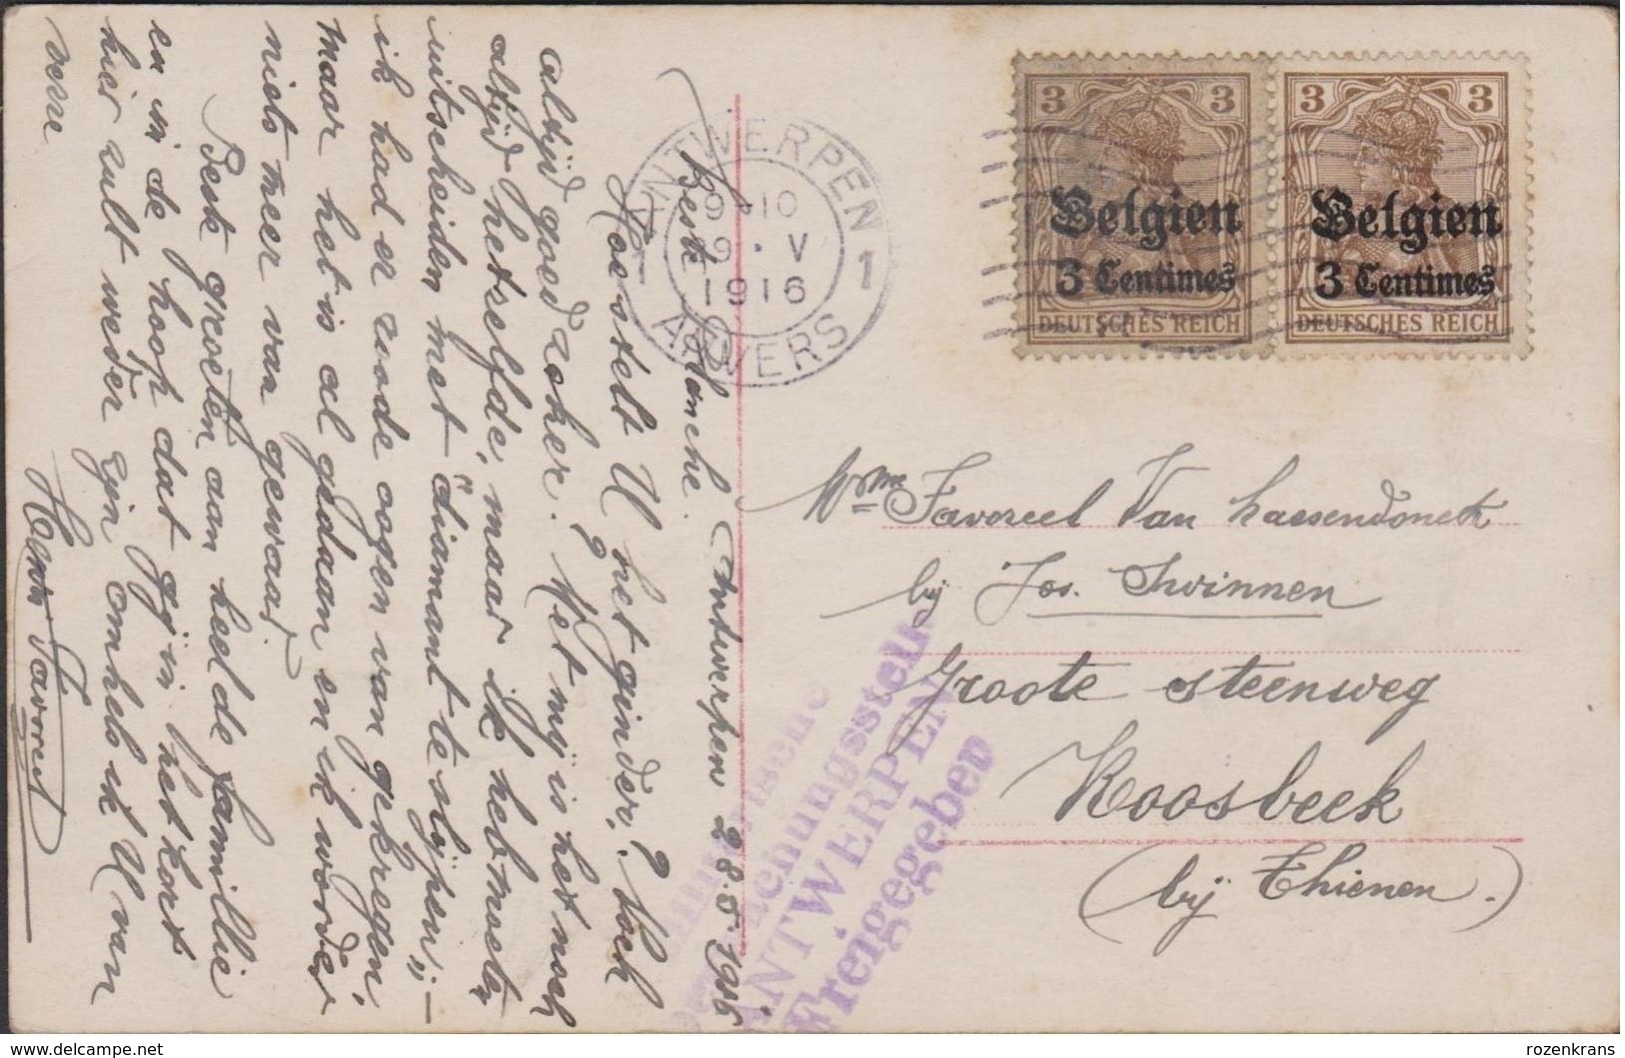 Antwerpen 28.5.1916
Beste Blanche.
Hoe stelt U het ginder? Toch
altijd goed zeker. Met mij is het noch
altijd hetzelfde, maar ik heb moeten
uitscheiden met "diamant te slijpen"; –
ik had er roode oogen van gekregen,
maar het is al gedaan en ik worder
niets meer van gewaar.
Beste groeten aan heel de familie
en in de hoop dat gij in het kort
hier zult weder zijn omhels ik U van
verre
Henri Favoreel
ANTWERPEN 1
9-10
9 · V
1916
ANVERS
3 3 3 3
Belgien Belgien
3 Centimes 3 Centimes
DEUTSCHES REICH DEUTSCHES REICH
Mme Favoreel Van Haesendonck
bij Jos. Swinnen
Groote steenweg
Roosbeek
(bij Thienen.)
ANTWERPEN
Freigegeben
rozenkrans
www.delcampe.net